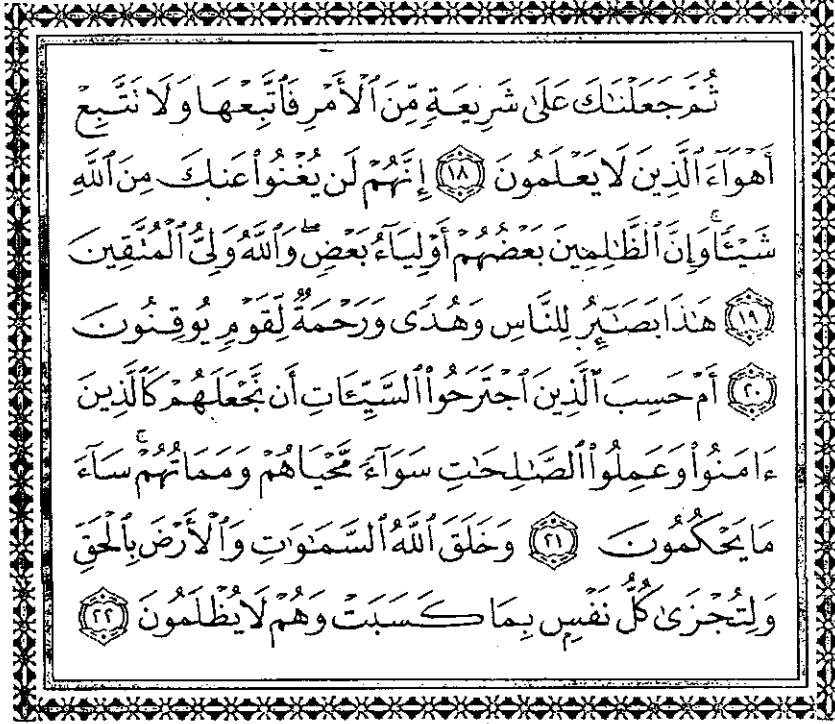 ثُمَّ جَعَلْنَٰكَ عَلَىٰ شَرِيعَةٍ مِّنَ ٱلْأَمْرِ فَٱتَّبِعْهَا وَلَا نَتَّبِعْ
أَهْوَآءَ ٱلَّذِينَ لَا يَعْلَمُونَ ١٨ إِنَّهُمْ لَن يُغْنُوا۟ عَنكَ مِنَ ٱللَّهِ
شَيْـًٔا ۚ وَإِنَّ ٱلظَّٰلِمِينَ بَعْضُهُمْ أَوْلِيَآءُ بَعْضٍ ۖ وَٱللَّهُ وَلِىُّ ٱلْمُتَّقِينَ
١٩ هَٰذَا بَصَٰٓئِرُ لِلنَّاسِ وَهُدًى وَرَحْمَةٌ لِّقَوْمٍ يُوقِنُونَ
٢٠ أَمْ حَسِبَ ٱلَّذِينَ ٱجْتَرَحُوا۟ ٱلسَّيِّـَٔاتِ أَن نَّجْعَلَهُمْ كَٱلَّذِينَ
ءَامَنُوا۟ وَعَمِلُوا۟ ٱلصَّٰلِحَٰتِ سَوَآءً مَّحْيَاهُمْ وَمَمَاتُهُمْ ۚ سَآءَ
مَا يَحْكُمُونَ ٢١ وَخَلَقَ ٱللَّهُ ٱلسَّمَٰوَٰتِ وَٱلْأَرْضَ بِٱلْحَقِّ
وَلِتُجْزَىٰ كُلُّ نَفْسٍۭ بِمَا كَسَبَتْ وَهُمْ لَا يُظْلَمُونَ ٢٢